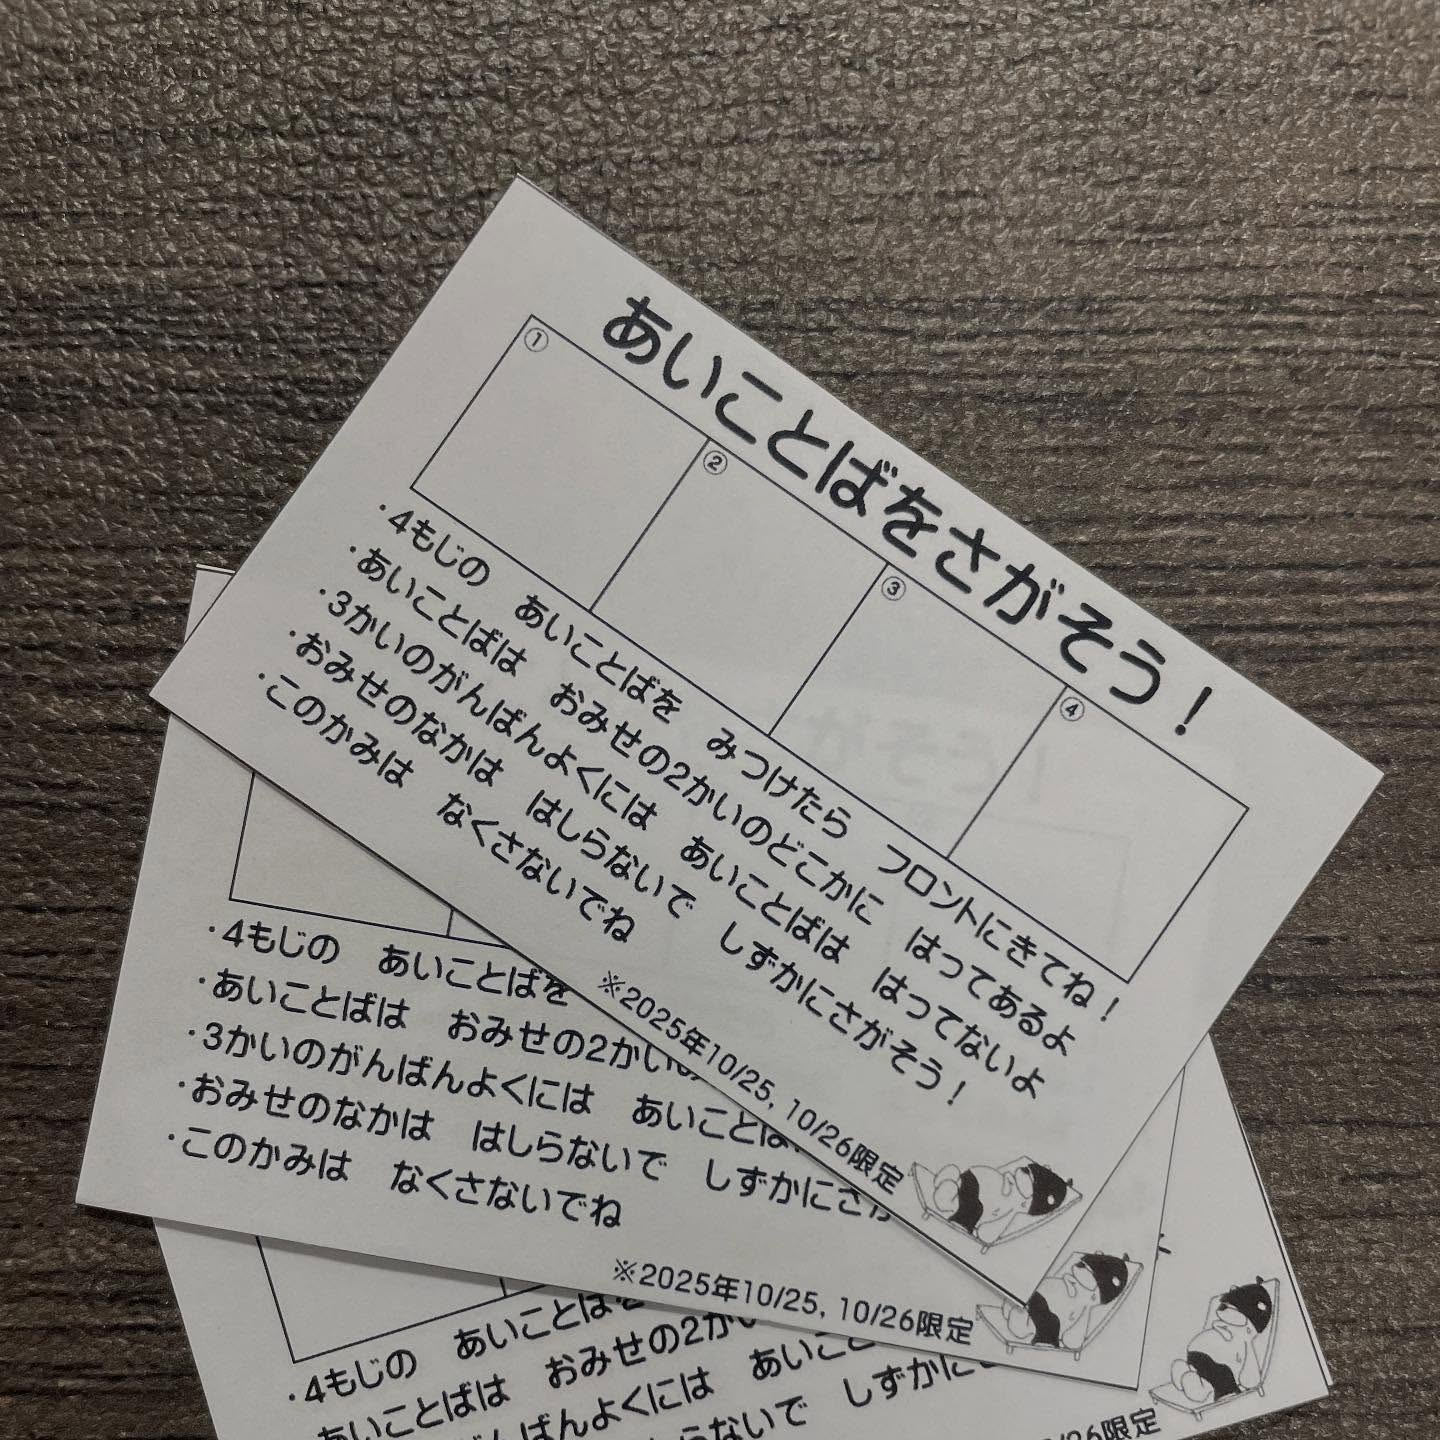 あいことばをさがそう!
① ② ③ ④
・4もじの あいことばを みつけたら フロントにきてね!
・あいことばは おみせの2かいのどこかに はってあるよ
・3かいのがんばんよくには あいことばは はってないよ
・おみせのなかは はしらないで しずかにさがそう!
・このかみは なくさないでね
※2025年10/25, 10/26限定
・4もじの あいことばを
・あいことばは おみせの2かい
・3かいのがんばんよくには あいことば
・おみせのなかは はしらないで しずかにさが
・このかみは なくさないでね
※2025年10/25, 10/26限定
・4もじの あいことばを
あいことばは おみせの2かい
がんばんよくには あいこと
らないで しずかに
10/26限定